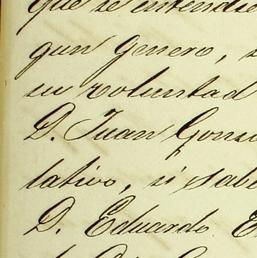 que se entendie
gun genero, s
su voluntad
D. Juan Gonz
lativo, si sabe
D. Eduardo E